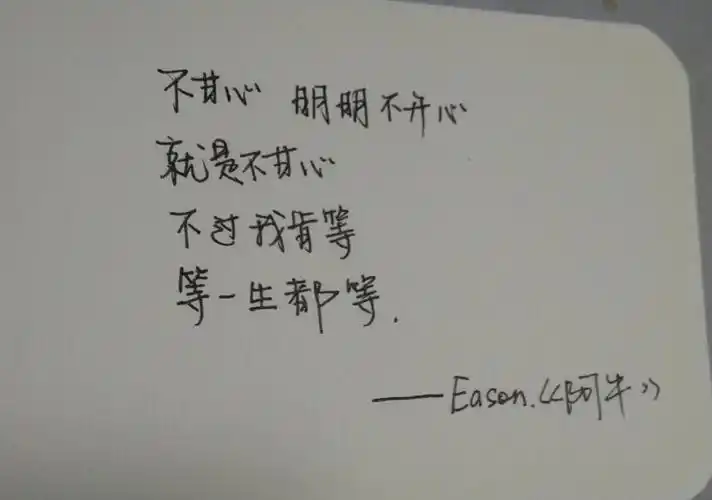 不甘心 明明不开心
就是不甘心
不过我肯等
等一生都等.
——Eason.《阿牛》